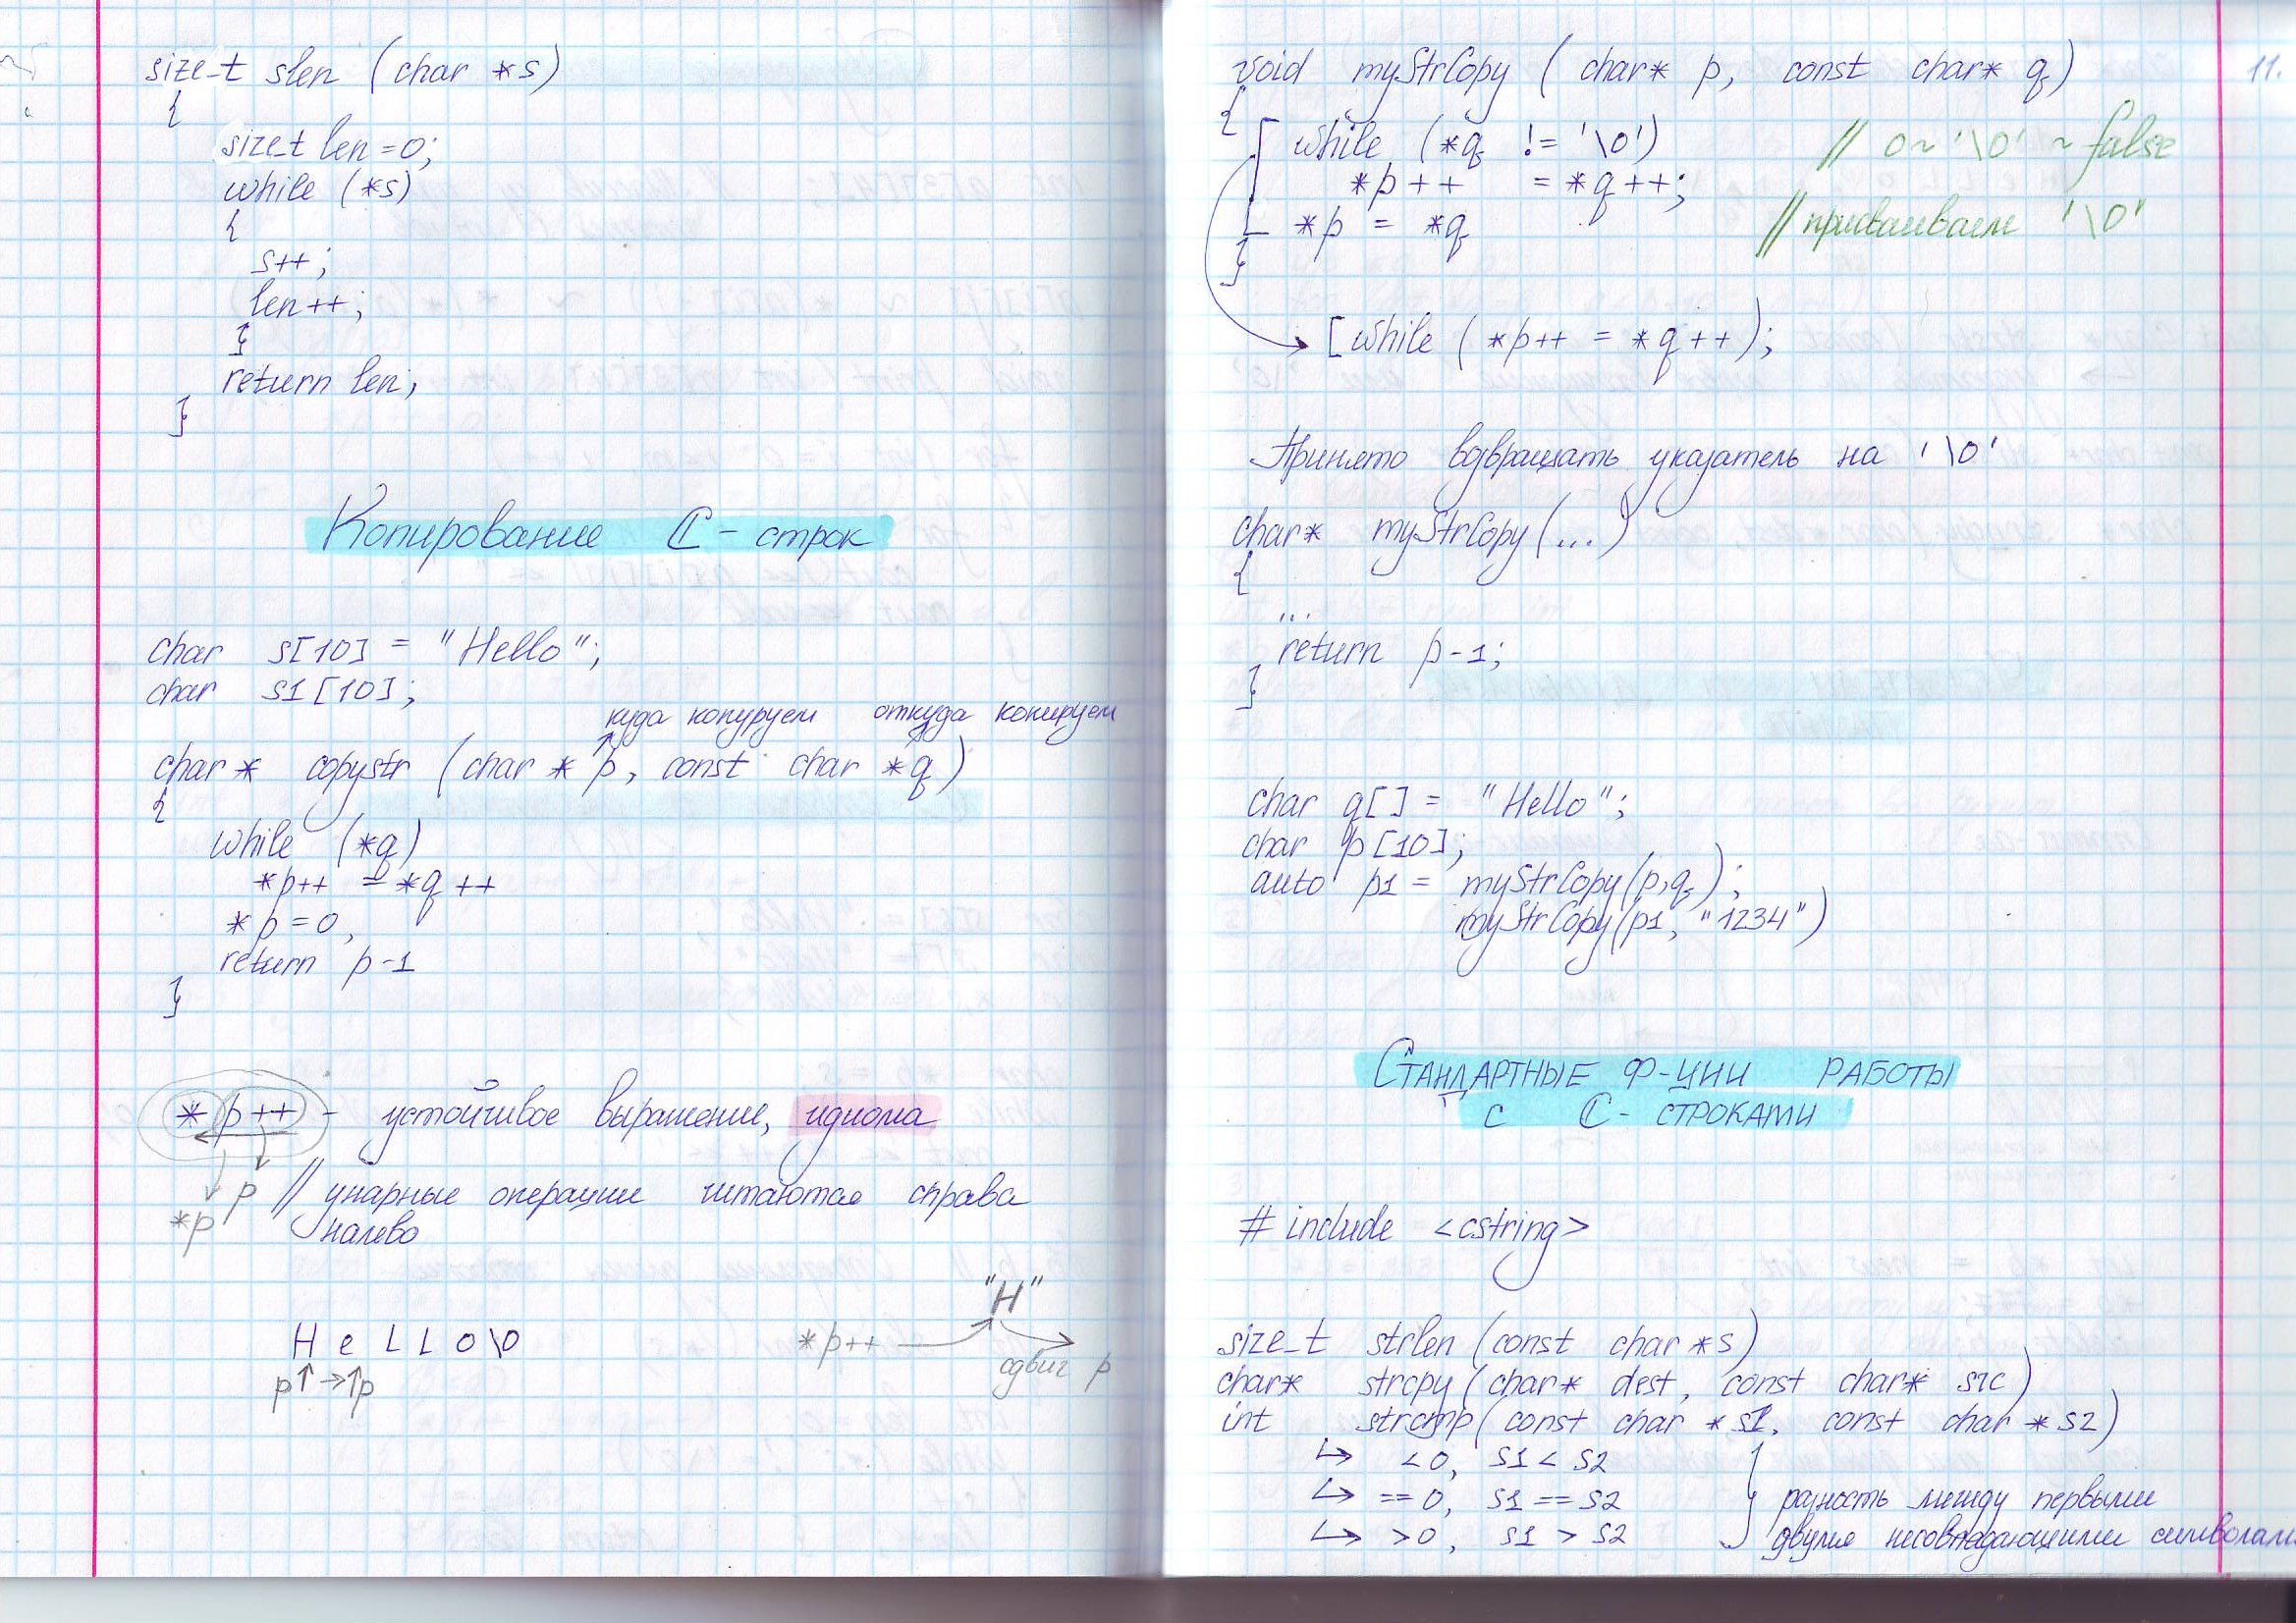 size_t slen (char *s)
{
size_t len=0;
while (*s)
{
s++;
len++;
}
return len;
}
Копирование C-строк
char s[10] = "Hello";
char s1[10];
куда копируем откуда копируем
char* copystr (char * p, const char *q)
{
while (*q)
*p++ = *q++
*p=0,
return p-1
}
*p++ - устойчивое выражение, идиома
p // унарные операции читаются справа
*p налево
"H"
H e L L o \0
*p++
сдвиг p
p → p
11.
void myStrCopy ( char* p, const char* q)
{
while (*q != '\0') // 0 ~ '\0' ~ false
*p++ = *q++;
*p = *q // присваиваем '\0'
}
[while ( *p++ = *q++);
Принято возвращать указатель на '\0'
char* myStrCopy (...)
{
...
return p-1;
}
char q[] = "Hello";
char p[10];
auto p1 = myStrCopy(p,q);
myStrCopy(p1, "1234")
СТАНДАРТНЫЕ Ф-ЦИИ РАБОТЫ
С C-СТРОКАМИ
# include <cstring>
size_t strlen (const char *s)
char* strcpy (char* dest, const char* src)
int strcmp (const char *s1, const char *s2)
↳ <0, s1 < s2
↳ ==0, s1 == s2 } разность между первыми
↳ >0, s1 > s2 двумя несовпадающими символами